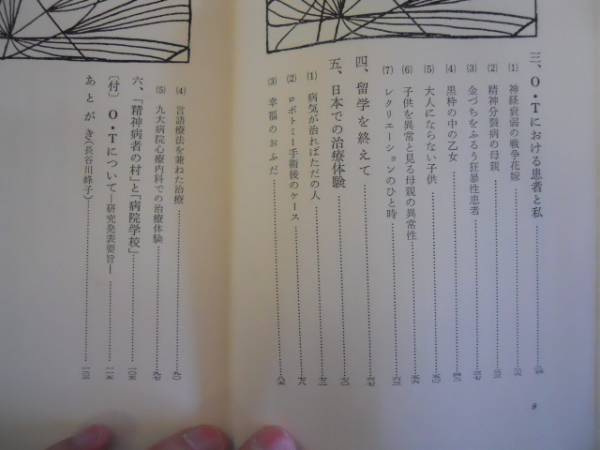 三、O・Tにおける患者と私
(1) 神経衰弱の戦争花嫁
(2) 精神分裂病の母親
(3) 金づちをふるう狂暴性患者
(4) 黒枠の中の乙女
(5) 大人にならない子供
(6) 子供を異常と見る母親の異常性
(7) レクリエーションのひと時
四、留学を終えて
五、日本での治療体験
(1) 病気が治ればただの人
(2) ロボトミー手術後のケース
(3) 幸福のおふだ
9
(4) 言語療法を兼ねた治療
(5) 九大病院心療内科での治療体験
六、「精神病者の村」と「病院学校」
〔付〕O・Tについて―研究発表要旨―
あとがき(長谷川峰子)